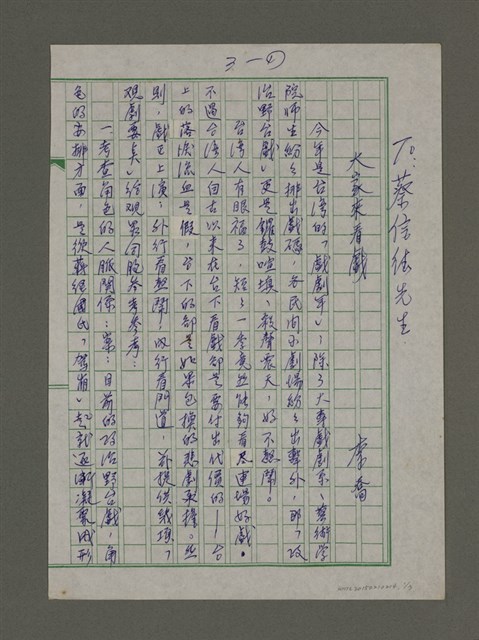 3-(1)
To: 蔡信德先生
大家來看戲
李喬
今年是台灣的「戲劇年」；除了大專戲劇系、藝術學
院師生紛紛排出戲碼，各民間小劇場紛紛出擊外，那「政
治野台戲」更是鑼鼓喧填、殺聲震天，好不熱鬧。
台灣人有眼福了，短短一季竟然能夠看盡連場好戲。
不過台灣人自古以來在台下看戲卻是要付出代價的——台
上的落淚流血是假，台下的卻是如果包換的悲劇乘揮。然
則，戲已上演；外行看熱鬧，內行看門道，茲提供幾項「
觀劇要點」給觀眾同胞參考參考：
一考查角色的人脈關係：案：目前的政治野台戲，角
色的安排方面，是從蔣經國氏「駕崩」起就逐漸凝聚成形